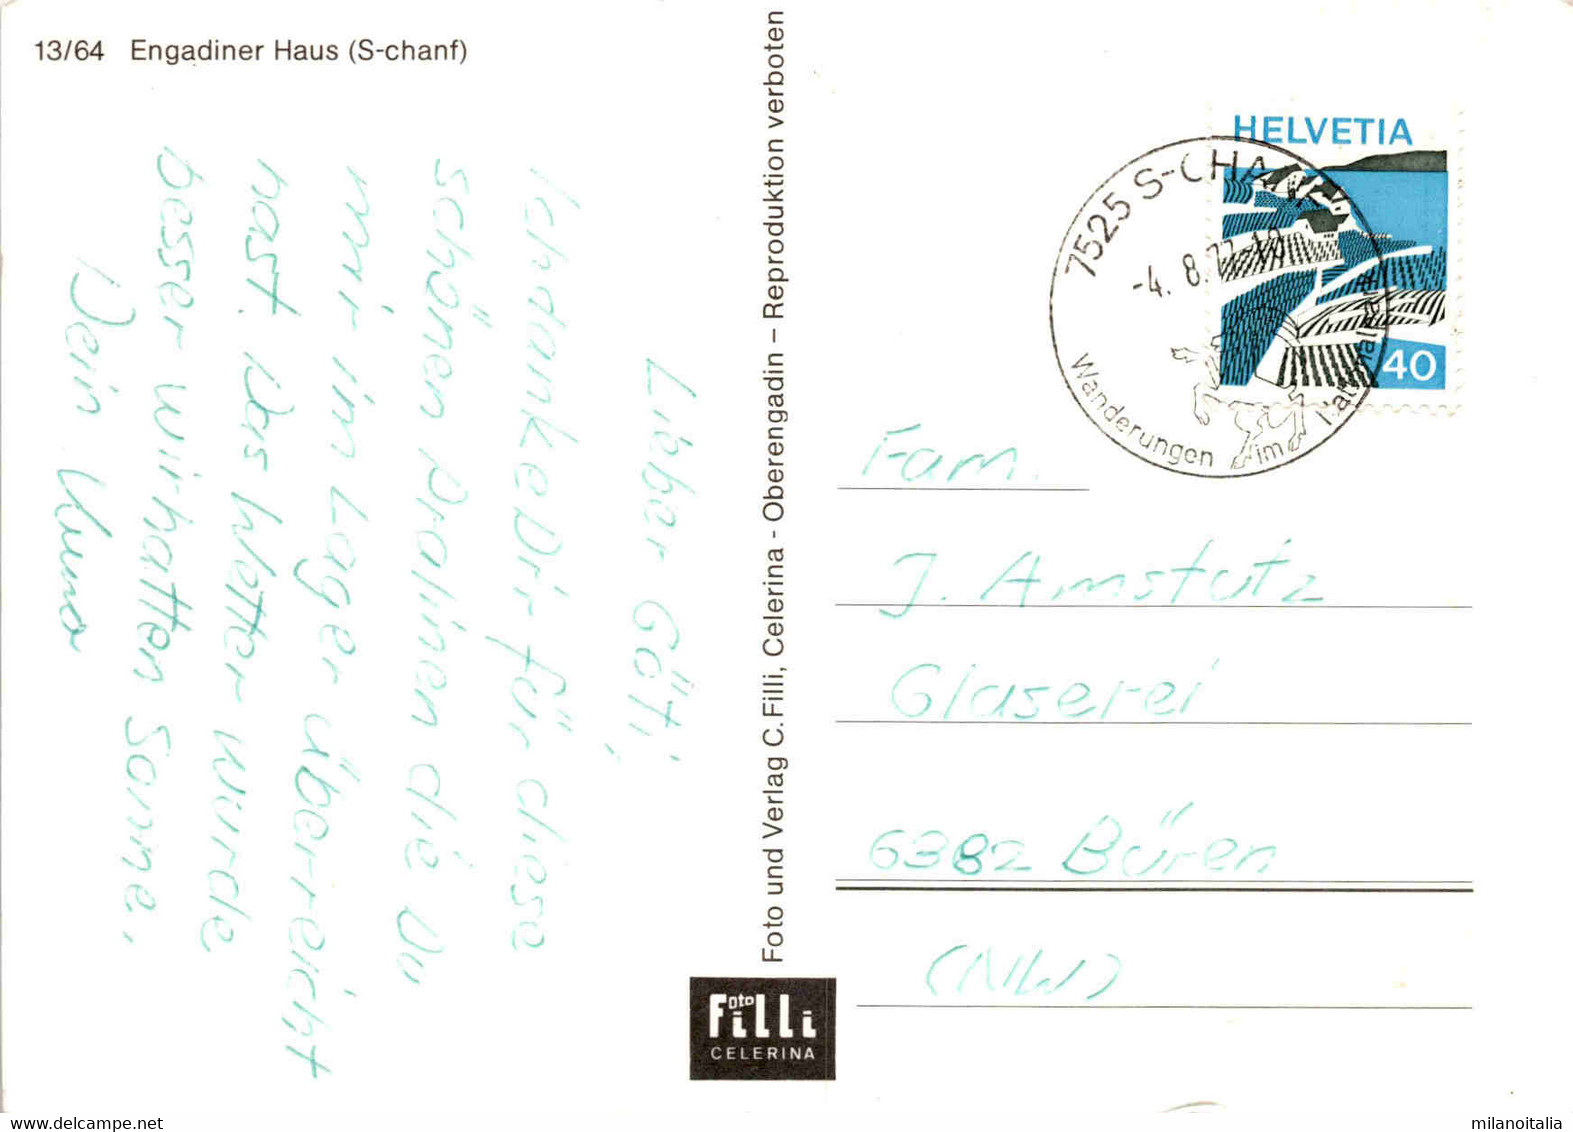 13/64 Engadiner Haus (S-chanf)
Lieber Göti,
Ich danke Dir für diese
schönen Pralinen die Du
mir im Lager überreicht
hast. Das Wetter wurde
besser wir hatten Sonne.
Dein Kuno
Foto und Verlag C. Filli, Celerina - Oberengadin – Reproduktion verboten
Foto
Filli
CELERINA
HELVETIA
40
7525 S-CHANF
-4. 8.77-18
Wanderungen im Nationalpark
Fam.
J. Amstutz
Glaserei
6382 Büren
(NW)
milanoitalia